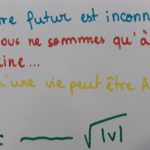 re futur est inconn
ous ne sommes qu'à
ine...
'une vie peut être A
= — √|v|